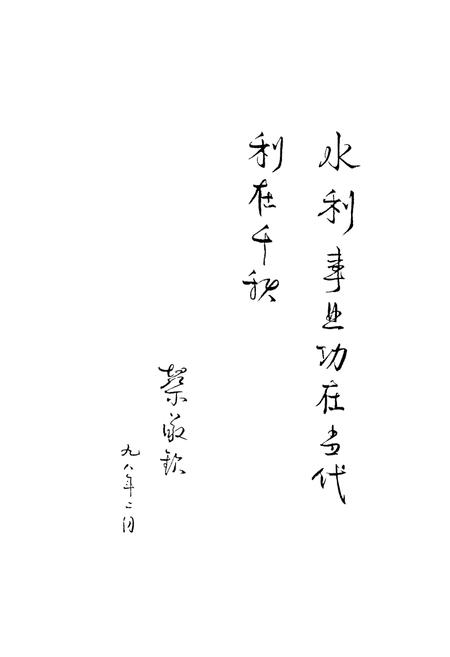 水利事业功在当代
利在千秋
钦
九八年二月